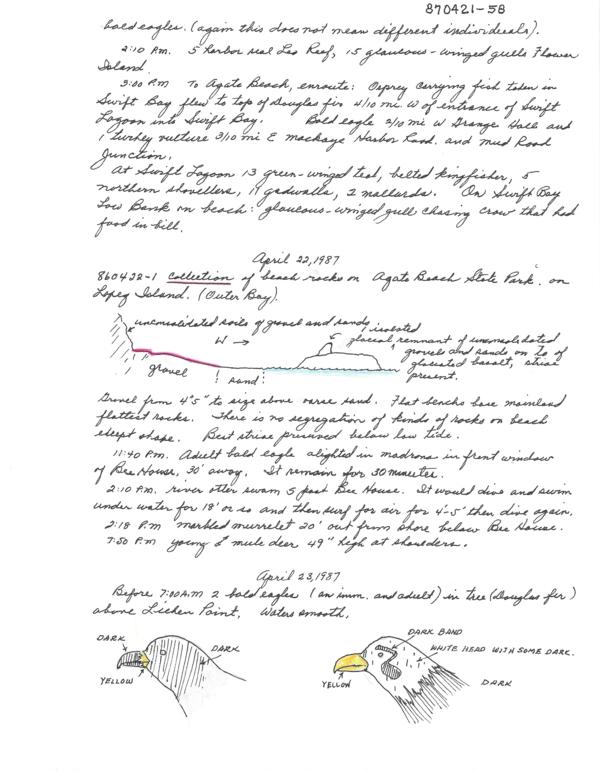 870421-58
bald eagles. (again this does not mean different individuals).
2:10 P.M. 5 harbor seal Leo Reef, 15 glaucous-winged gulls Flower
Island
3:00 P.M To Agate Beach, enroute: Osprey carrying fish taken in
Swift Bay flew to top of Douglas fir 4/10 mi. W of entrance of Swift
Lagoon into Swift Bay. Bald eagle 2/10 mi W Grange Hall and
1 turkey vulture 3/10 mi E mackaye Harbor Road, and Mud Road
Junction.
At Swift Lagoon 13 green-winged teal, belted kingfisher, 5
northern shovellers, 11 gadwalls, 2 mallards. On Swift Bay
Low Bank on beach: glaucous-winged gull chasing crow that had
food in bill.
April 22, 1987
860422-1 Collection of beach rocks on Agate Beach State Park. on
Lopez Island. (Outer Bay).
unconsolidated soils of gravel and sands
W →
isolated
glacial remnant of unconsolidated
gravels and sands on top of
glaciated basalt, striae
present.
gravel
sand
Gravel from 4"5" to size above coarse sand. Flat benchs base mainland
flattest rocks. There is no segregation of kinds of rocks on beach
except shape. Best striae preserved below low tide.
11:40 P.M. Adult bald eagle alighted in madrona in front window
of Bee House, 30' away. It remain for 30 minutes.
2:10 P.M. river otter swam S past Bee House. It would dive and swim
under water for 18' or so and then surf for air for 4-5' then dive again.
2:18 P.M marbled murrelet 20' out from shore below Bee House.
7:50 P.M young ♂ mule deer 49" high at shoulders.
April 23, 1987
Before 7:00 A.M 2 bald eagles (an imm. and adult) in tree (Douglas fir)
above Lichen Point. Waters smooth.
DARK
DARK
YELLOW
DARK BAND
WHITE HEAD WITH SOME DARK.
YELLOW
DARK